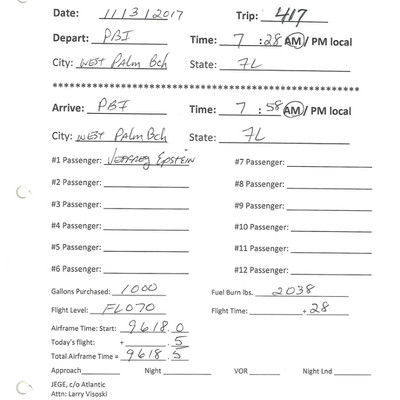 Date: 11/3/2017 Trip: 417
Depart: PBI Time: 7 :28 AM / PM local
City: WEST PALM BCH State: FL
Arrive: PBI Time: 7 : 58 AM / PM local
City: WEST PALM BCH State: FL
#1 Passenger: JEFFREY EPSTEIN #7 Passenger:
#2 Passenger: #8 Passenger:
#3 Passenger: #9 Passenger:
#4 Passenger: #10 Passenger:
#5 Passenger: #11 Passenger:
#6 Passenger: #12 Passenger:
Gallons Purchased: 1000 Fuel Burn lbs. 2038
Flight Level: FL070 Flight Time: +28
Airframe Time: Start: 9618.0
Today's flight: + .5
Total Airframe Time = 9618.5
Approach Night VOR Night Lnd
JEGE, c/o Atlantic
Attn: Larry Visoski